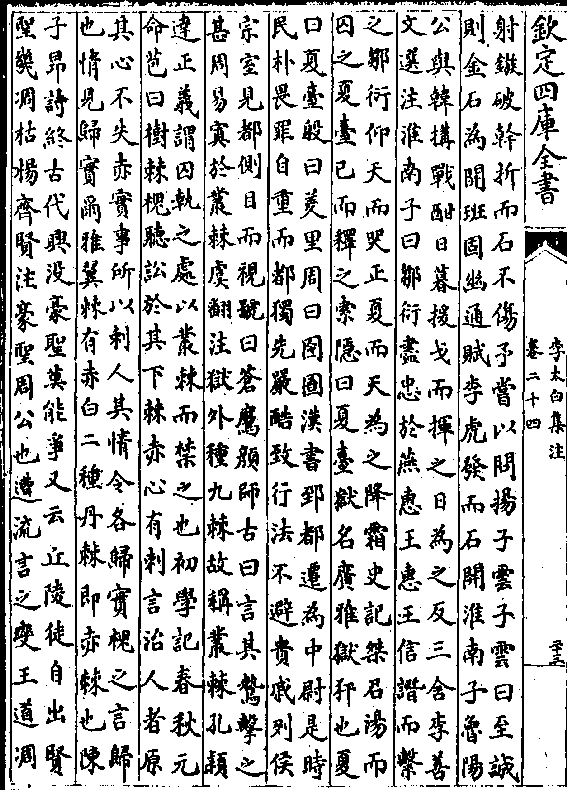 欽定四庫全書
李太白集注
卷二十四
射鏃破幹折而石不傷予嘗以問揚子雲子雲曰至誠
則金石為開班固幽通賦李虎發而石開淮南子魯陽
公與韓搆戰酣日暮援戈而揮之日為之反三舍李善
文選注淮南子曰鄒衍盡忠於燕惠王惠王信譖而繫
之鄒衍仰天而哭正夏而天為之降霜史記桀召湯而
囚之夏臺已而釋之索隱曰夏臺獄名廣雅獄犴也夏
曰夏臺殷曰羑里周曰囹圄漢書郅都遷為中尉是時
民朴畏罪自重而都獨先嚴酷致行法不避貴戚列侯
宗室見都側目而視號曰蒼鷹顏師古曰言其鷙擊之
甚周易寘於叢棘虞翻注獄外種九棘故稱叢棘孔穎
達正義謂囚執之處以叢棘而禁之也初學記春秋元
命苞曰樹棘槐聽訟於其下棘赤心有刺言治人者原
其心不失赤實事所以刺人其情令各歸實槐之言歸
也情見歸實爾雅翼棘有赤白二種丹棘即赤棘也陳
子昂詩終古代興沒豪聖莫能爭又云丘陵徒自出賢
聖幾凋枯楊齊賢注豪聖周公也遭流言之變王道凋